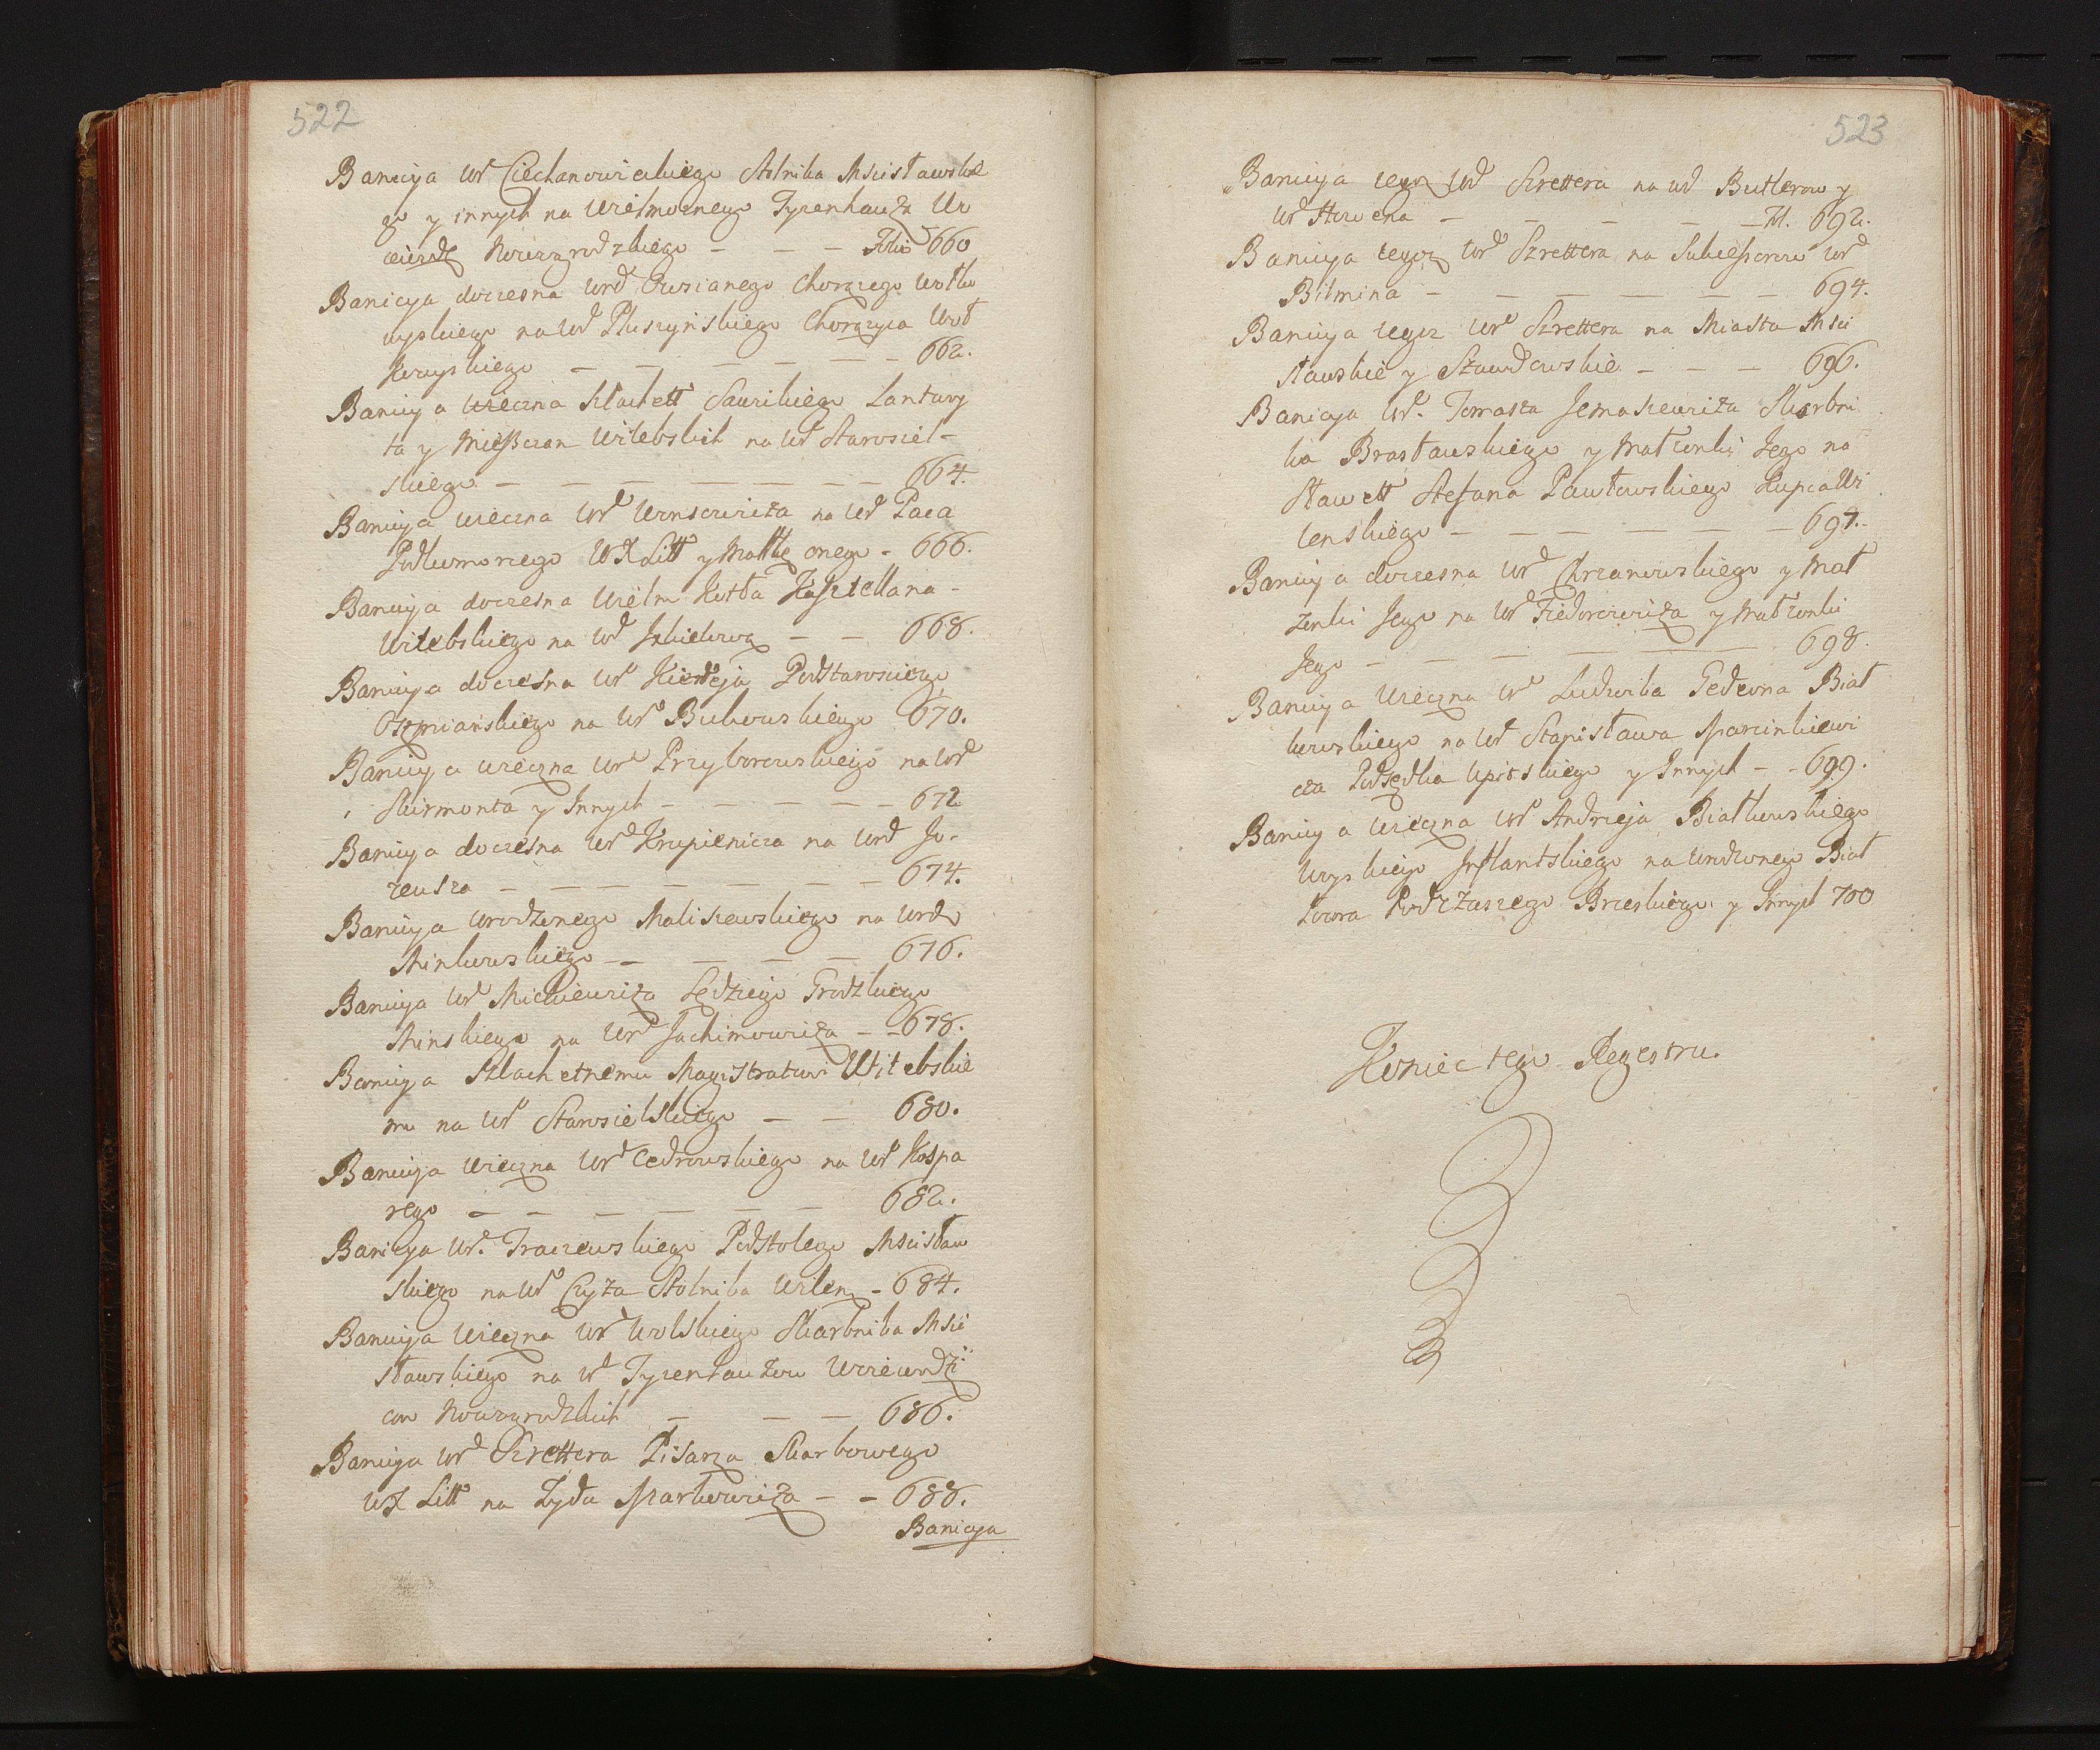 522
Banicya Ur Ciechanowieckiego Stolnika Mscisławskie
go y innych na Wielmoznego Tyzenhauza Wo
iewodz Nowogrodzkiego - - - Folio 660
Banicya doczesna Urd Owsianego Chorązego Wołko
wyskiego na Ur Pluszyńskiego Chorązyca Woł
kowyskiego - - - - - 662.
Banicya wieczna Szlachett Sawickiego Lantwoy
ta y Mieszczan Witebskich na Ur Starosiel-
skiego - - - - - - - 664.
Banicya wieczna Urd na Ur Paca
Podkomorzego WX Litt y Małżę onego - 666.
Banicya doczesna Wielm Kosta Kasztellana -
Witebskiego na Urd - - 668.
Banicya doczesna Ur Kierdeja Podstarosciego
Oszmianskiego na Ur Bukowskiego 670.
Banicya wieczna Ur Przyborowskiego na Urd
Skirmonta y Innych - - - - - 672
Banicya doczesna Ur Krupienicza na Urd Ju-
rewsza - - - - - - - 674.
Banicya Urodzonego Maliszewskiego na Urdo
Minkowskiego - - - - 676.
Banicya Ur Mickiewicza Sędziego Grodzkiego
Minskiego na Urd Jachimowicza - - 678.
Banicya Szlachetnemu Magistratowi Witebskie
mu na Ur Starosielskiego - - 680.
Banicya wieczna Urd Cedrowskiego na Ur Kospa
rego - - - - - - 682.
Banicya Ur. Traczewskiego Podstolego Mscisław
skiego na Ur Czyza Stolnika Wilen - 684.
Banicya wieczna Ur Wolskiego Skarbnika Msci
sławskiego na Ur Tyzenhauzow Woiewodzi
cow Nowogrodzkich - - - 686.
Banicya Urd Szrettera Pisarza Skarbowego
WX Litt na Zyda Markowicza - - 688.
Banicya
523
Banicya tegoz Urd Szrettera na Ur Butlerow y
Ur Howena - - - - - Fol. 692.
Banicya tegoz Urd Szrettera na Sukcessorow Ur
Bitmina - - - - - - 694.
Banicya tegoz Ur Szrettera na Miasta Msci
sławskie y Szawdowskie - - - 696.
Banicya Ur. Tomasza Jemaszewicza Skarbni
ka Brasławskiego y Małzonki Jego na
Sławett Stefana Pawłowskiego Kupca Wi
lenskiego - - - - - - 697.
Banicya doczesna Urd Chrzanowskiego y Mał
zonki Jego na Ur Fiedorowicza y Małzonki
Jego - - - - - - 698.
Banicya Wieczna Ur Ludwika Gedeona Biał
kowskiego na Ur Stanisława Marcinkiewi
cza Podsędka Upitskiego y Innych - - 699.
Banicya Wieczna Ur Andrzeja Białkowskiego
Woyskiego Inflantskiego na Urodzonego Biał
łozora Podczaszego Brzeskiego y Innych 700
Koniec tego Regestru.